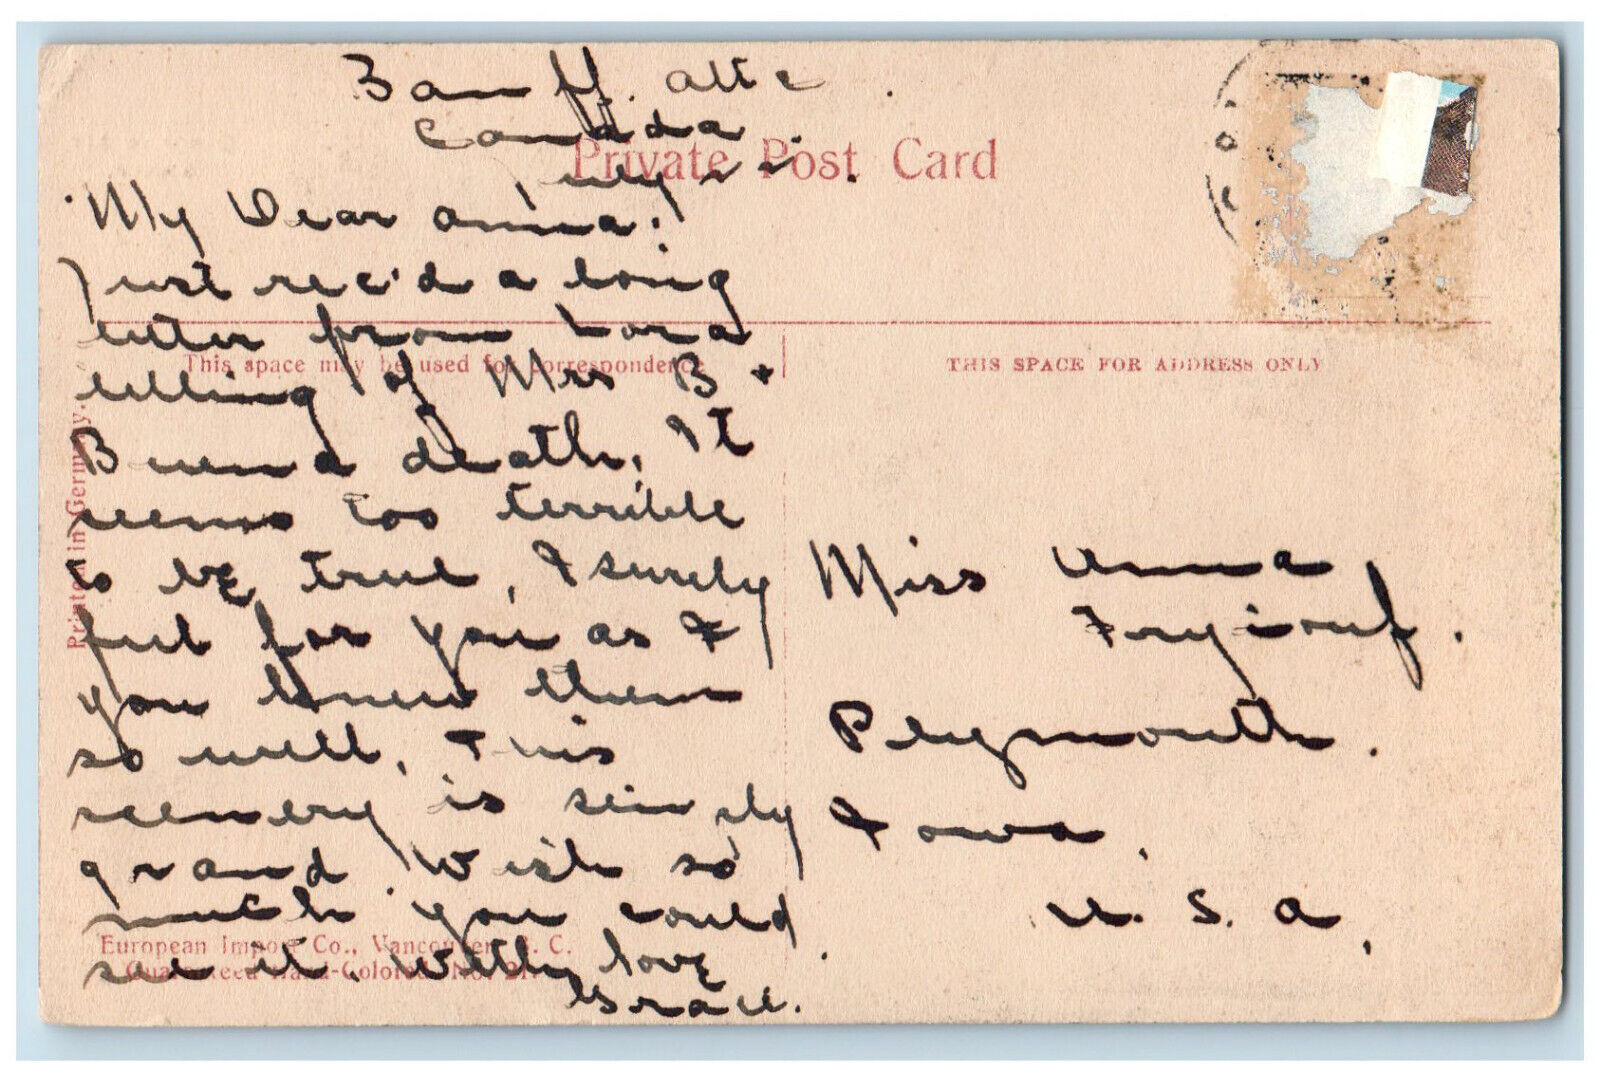 Banff. Alta
Canada
Private Post Card
My Dear Anna:
Just rec'd a long
letter from Lora
This space may be used for correspondence
THIS SPACE FOR ADDRESS ONLY
telling of Mrs B +
death, It
seems too terrible
to be true, I surely
feel for you as I
you knew them
so well. This
scenery is simply
grand. Wish so
much you could
see it. With love
Grace.
Printed in Germany.
European Import Co., Vancouver, B. C.
Guaranteed Hand-Colored. No.
Miss Anna
Plymouth.
Iowa,
U. S. A,